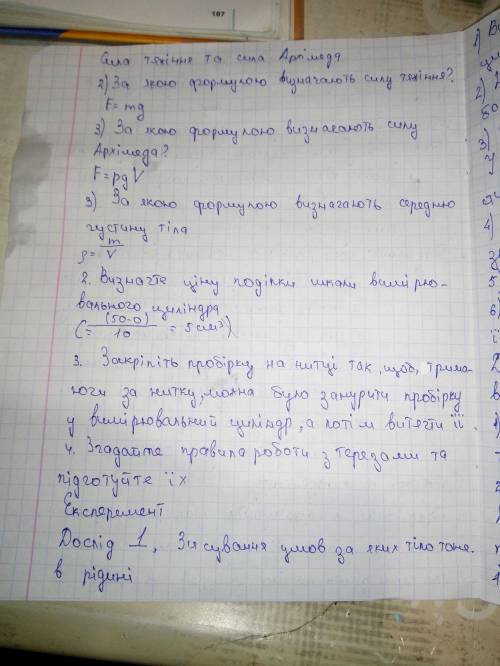 187
Сила тяжіння та сила Архімеда
2) За якою формулою визначають силу тяжіння?
F = mg
3) За якою формулою визначають силу
Архімеда?
F = ρgV
3) За якою формулою визначають середню
густину тіла
ρ = m/V
2. Визначте ціну поділки шкали вимірю-
вального циліндра
C = (50-0)/10 = 5 (см³)
3. Закріпіть пробірку на нитці так, щоб, трима-
ючи за нитку, можна було занурити пробірку
у вимірювальний циліндр, а потім витягти її
4. Згадайте правила роботи з терезами та
підготуйте їх
Експеремент
Дослід 1, Зясування умов за яких тіло тоне
в рідині
1)
2)
3)
4)
5
6)